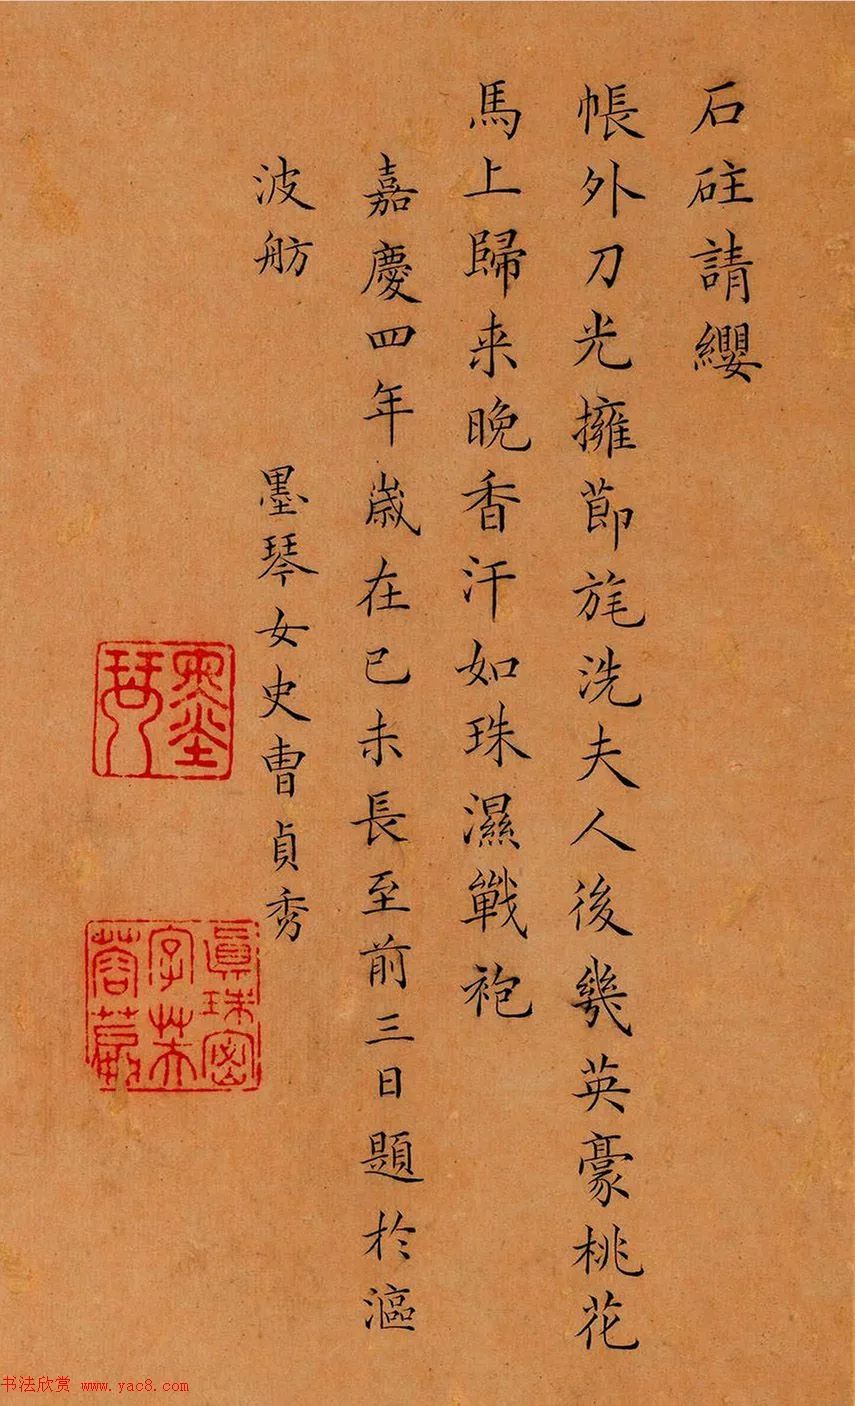 石砫請纓
帳外刀光擁節旄洗夫人後幾英豪桃花
馬上歸来晚香汗如珠濕戰袍
嘉慶四年歲在己未長至前三日題於漚
波舫
墨琴女史曹貞秀
墨琴
眞珠密
字芙
蓉篆
书法欣赏 www.yac8.com